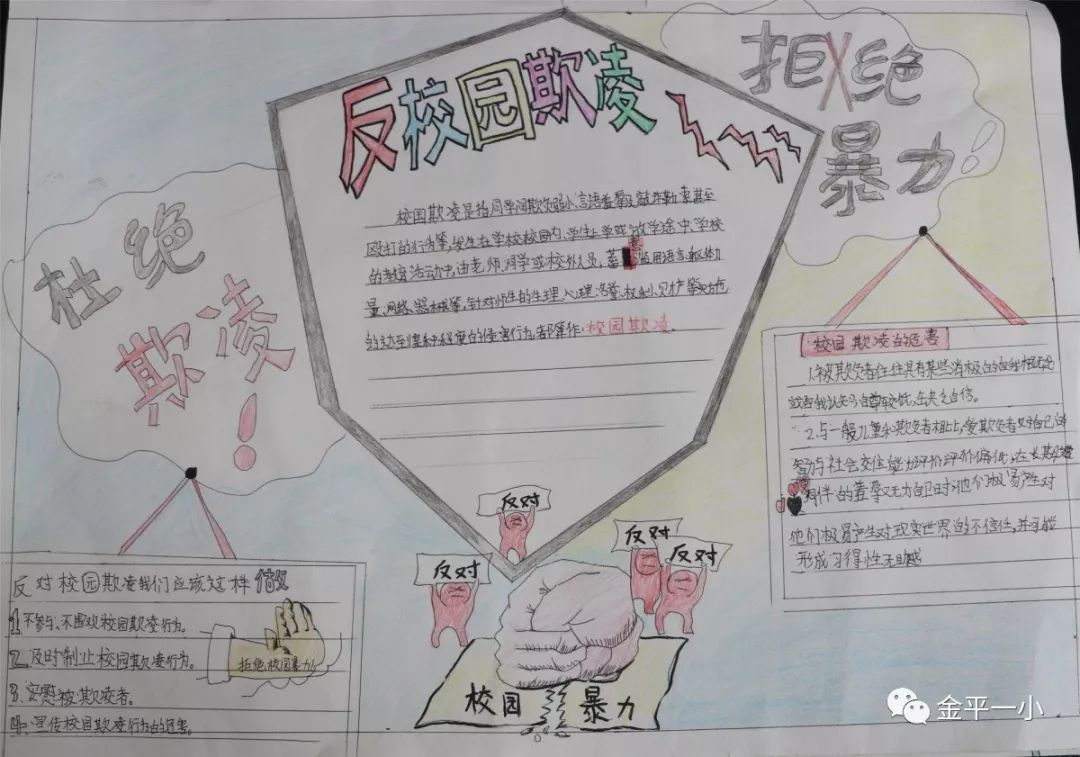 反校园欺凌
拒绝
暴力
杜绝
欺凌!
校园欺凌是指同学间欺负弱小、言语羞辱及敲诈勒索甚至
殴打的行为等,发生在学校校园内、学生上学或放学途中、学校
的教育活动中,由老师、同学或校外人员,蓄 滥用语言、躯体力
量、网络、器械等,针对师生的生理、心理、名誉、权利、财产等实施
的达到某种程度的侵害行为,都算作校园欺凌。
校园欺凌的危害
1.被欺负者往往具有某些消极的自我概念
或自我认知,自尊较低,缺乏自信。
2.与一般儿童和欺负者相比,受欺负者对自己的
智力与社会交往能力评价评价偏低,在长期遭
同伴的羞辱又无力自卫时,他们极易产生对
他们极易产生对现实世界的不信任,并可能
形成习得性无助感
反对校园欺凌我们应该这样做
1.不参与、不围观校园欺凌行为。
2.及时制止校园欺凌行为。
3.安慰被欺凌者。
4.宣传校园欺凌行为的危害。
拒绝校园暴力
反对
反对
反对
反对
校园 暴力
金平一小